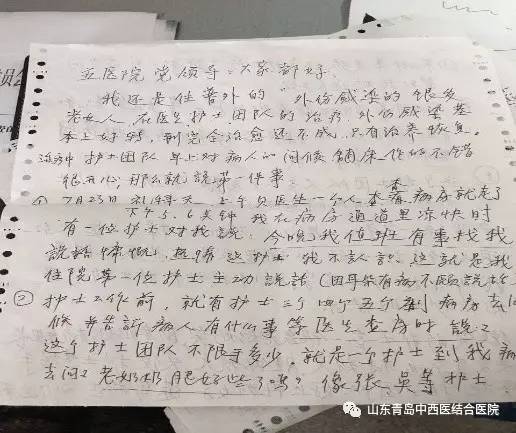 立医院党领导：大家都好
我还是住普外的"外伤感染的银发
老女人，在医生护士团队的治疗，外伤感染基
本上好转，到完全治愈还不成，只有治养恢复。
治疗中护士团队早上对病人的问候铺床作的不错
很开心，那么就説第一件事：
① 7月23日 礼拜天 上午只医生一个人查病房就走了
下午5.6点钟 我在病房通道里凉快时
有一位护士对我説：今晚我值班有事找我
説话慷慨，热情这护士我不认识。这就是我
住院第一位护士主动説話（因耳朵有病不願説話
② 护士工作前，就有护士三个四个五个到病房去问
候并告訴病人有什么事等医生查房时説。
这个护士团队不限于多少，就是一个护士到我病
去问：老奶奶腿好些了吗？像张、吴等护士
山东青岛中西医结合医院